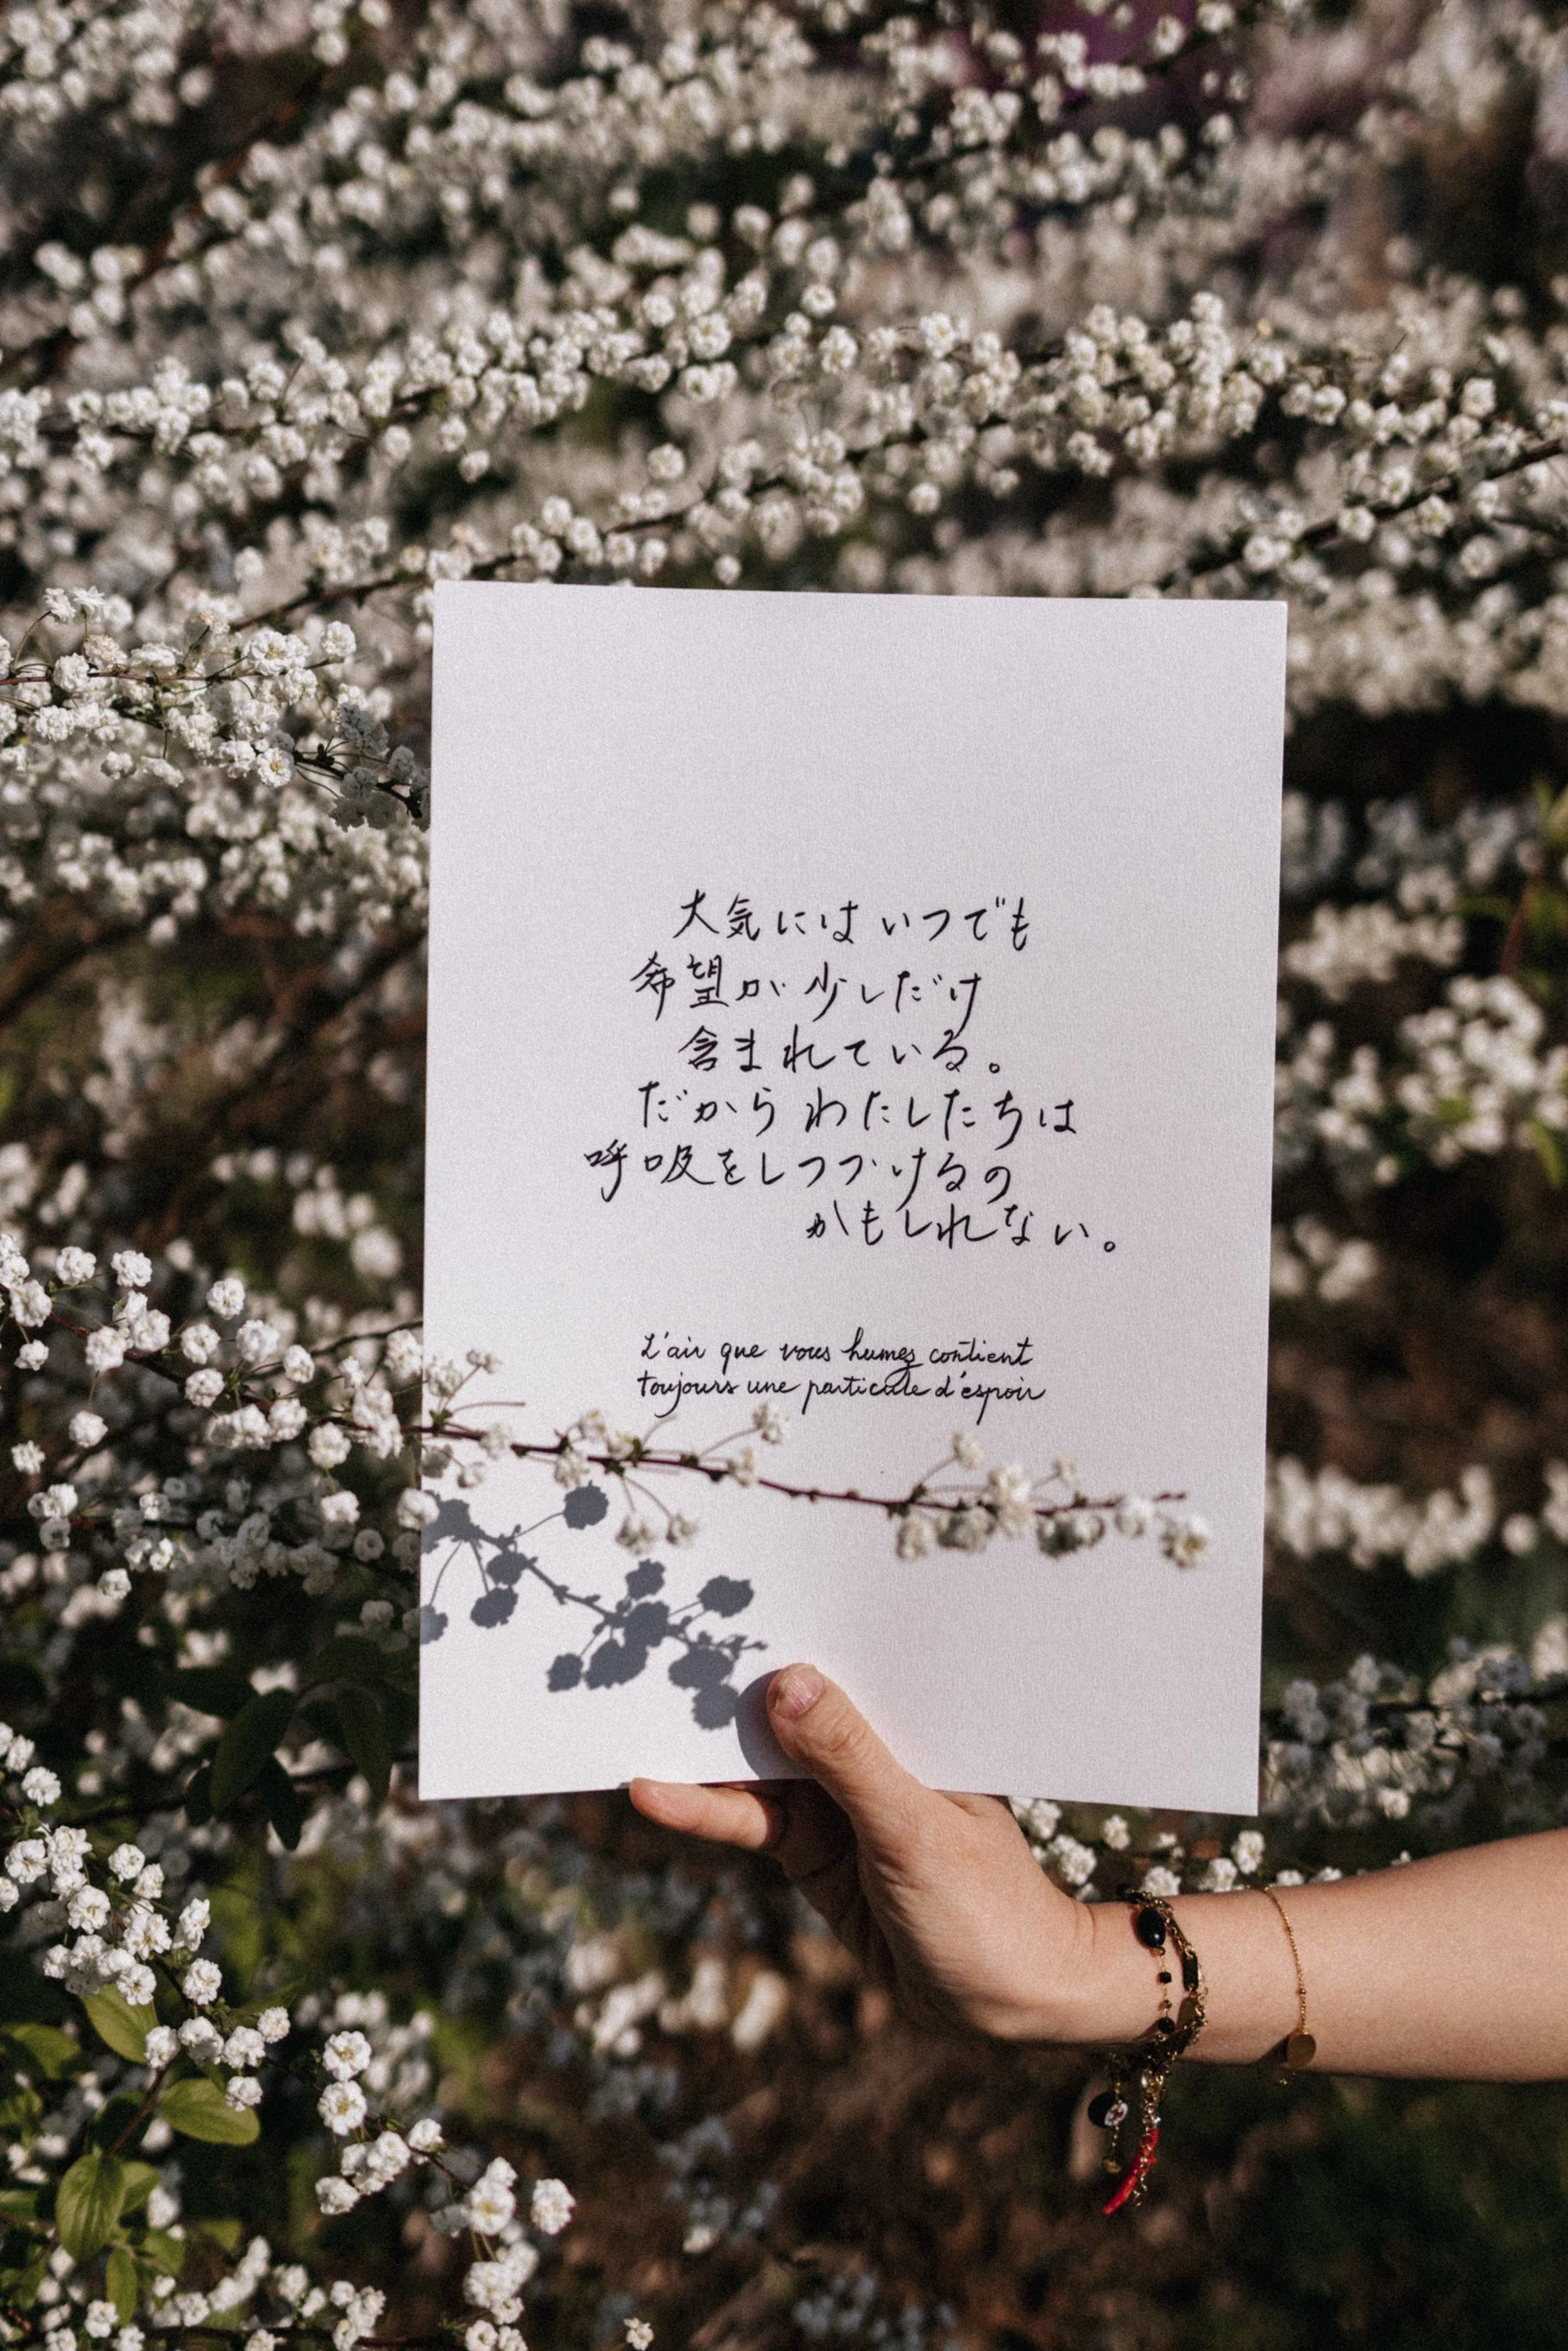 大気には いつでも
希望が少しだけ
含まれている。
だから わたしたちは
呼吸をしつづけるの
かもしれない。
L'air que vous humez contient
toujours une particule d'espoir